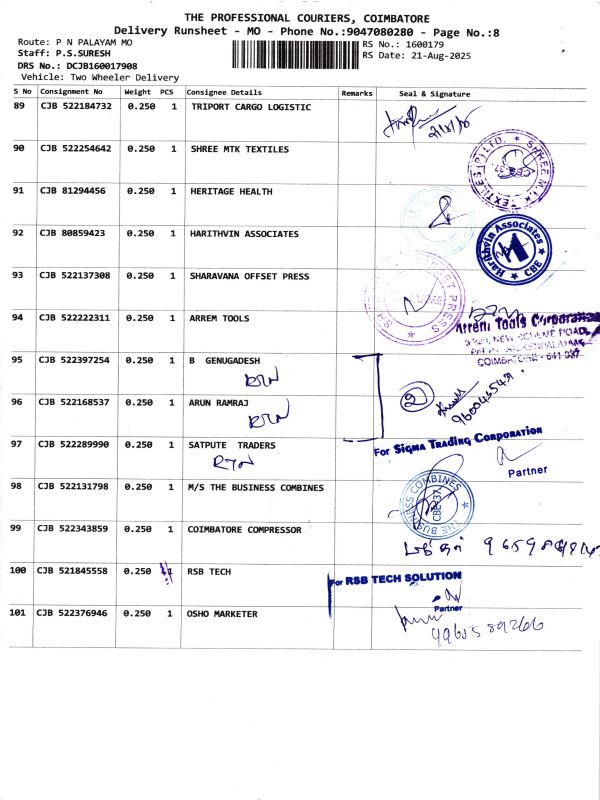 THE PROFESSIONAL COURIERS, COIMBATORE
Delivery Runsheet - MO - Phone No.:9047080280 - Page No.:8
Route: P N PALAYAM MO
RS No.: 1600179
Staff: P.S.SURESH
RS Date: 21-Aug-2025
DRS No.: DCJB160017908
Vehicle: Two Wheeler Delivery
S No Consignment No Weight PCS Consignee Details Remarks Seal & Signature
89 CJB 522184732 0.250 1 TRIPORT CARGO LOGISTIC
90 CJB 522254642 0.250 1 SHREE MTK TEXTILES
91 CJB 81294456 0.250 1 HERITAGE HEALTH
92 CJB 80859423 0.250 1 HARITHVIN ASSOCIATES
Harithvin Associates
CBE
93 CJB 522137308 0.250 1 SHARAVANA OFFSET PRESS
94 CJB 522222311 0.250 1 ARREM TOOLS
Arrem Tools Corporation
COIMBATORE - 641 037
95 CJB 522397254 0.250 1 B GENUGADESH
RTN
96 CJB 522168537 0.250 1 ARUN RAMRAJ
RTN
2
97 CJB 522289990 0.250 1 SATPUTE TRADERS
RTN
For SIGMA TRADING CORPORATION
Partner
98 CJB 522131798 0.250 1 M/S THE BUSINESS COMBINES
THE BUSINESS COMBINES
CBE-37
99 CJB 522343859 0.250 1 COIMBATORE COMPRESSOR
100 CJB 521845558 0.250 RSB TECH
For RSB TECH SOLUTION
Partner
101 CJB 522376946 0.250 1 OSHO MARKETER